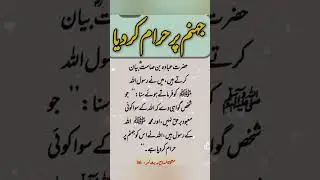 جہنم پر حرام کر دیا
حضرت عبادہ بن صامتؓ بیان
کرتے ہیں، میں نے رسول اللہ
ﷺ کو فرماتے ہوئے سنا: ” جو
شخص گواہی دے کہ اللہ کے سوا کوئی
معبود برحق نہیں، اور محمد ﷺ اللہ
کے رسول ہیں، اللہ نے اس کو جہنم پر
حرام کر دیا ہے۔“